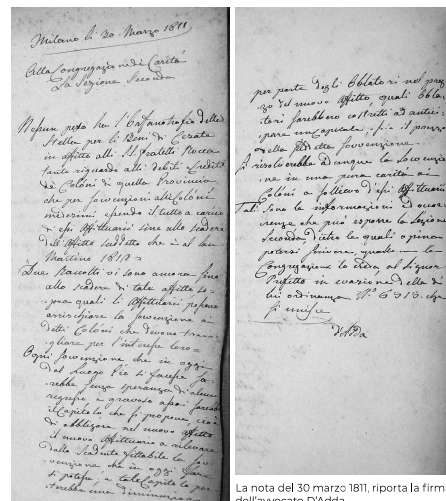 Milano li 30. Marzo 1811
Alla Congregazione di Carità
La Sezione Seconda
Nessun peso ha l'Orfanotrofio della
Stella per li Beni di
in affitto alli Sg.ri Fratelli Rocca
tanto riguardo alli debiti e Crediti
de Coloni di quella Provincia
che per sovvenzioni alli Coloni
medesimi essendo il tutto a carico
di essi Affittuarj sino alla scadenza
dell'Affitto suddetto che è al San
Martino 1812
Due Raccolti vi sono ancora sino
alla scadenza di tale affitto so-
pra quali li Affittuarj possono
arrischiare la sovvenzione ai
detti Coloni che devono trava-
gliare per l'interesse loro
Ogni sovvenzione che in oggi
dal Luogo Pio si facesse sa-
rebbe senza speranza di alcun
regresso, e gravoso assai sarebbe
il Capitolo che si propone, cioè
di obbligare nel nuovo affitto
il nuovo Affittuario a rilevare
dallo scadente fittabile la sov-
venzione che in oggi
si potesse, e tale Capitolo por-
terebbe una diminuzione
per parte degli Oblatori nel prez-
zo del nuovo Affitto, quali Obla-
tori sarebbero costretti ad antici-
pare un Capitale,
della suddetta sovvenzione.
Si risolverebbe dunque la sovvenzio-
ne in una pura carità ai
Coloni a sollievo d'essi Affittuarj
Tali sono le informazioni ed occor-
renze che può esporre la Sezione
Seconda, dietro le quali opina
potersi scrivere, quando la
Congregazione lo creda al Signor
Prefetto in evasione della di
lui ordinanza N.o 6313. che
si unisce
D'Adda
La nota del 30 marzo 1811, riporta la firm
dell'avvocato D'Adda